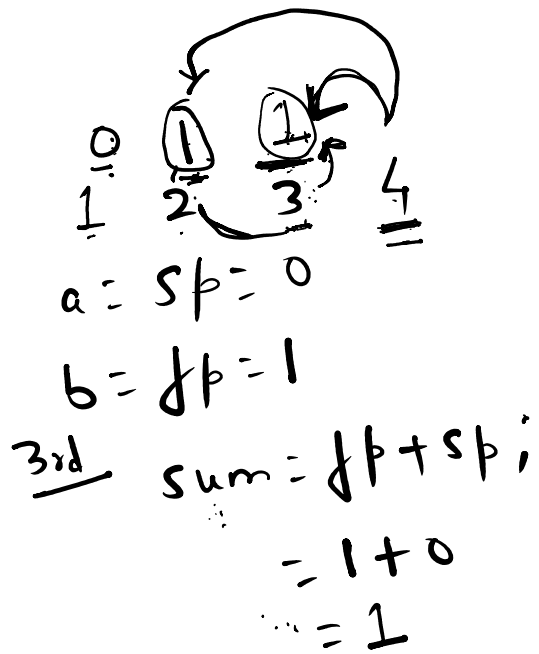 0 1 1
1 2 3 4
a = sp = 0
b = fp = 1
3rd sum = fp + sp;
= 1 + 0
= 1